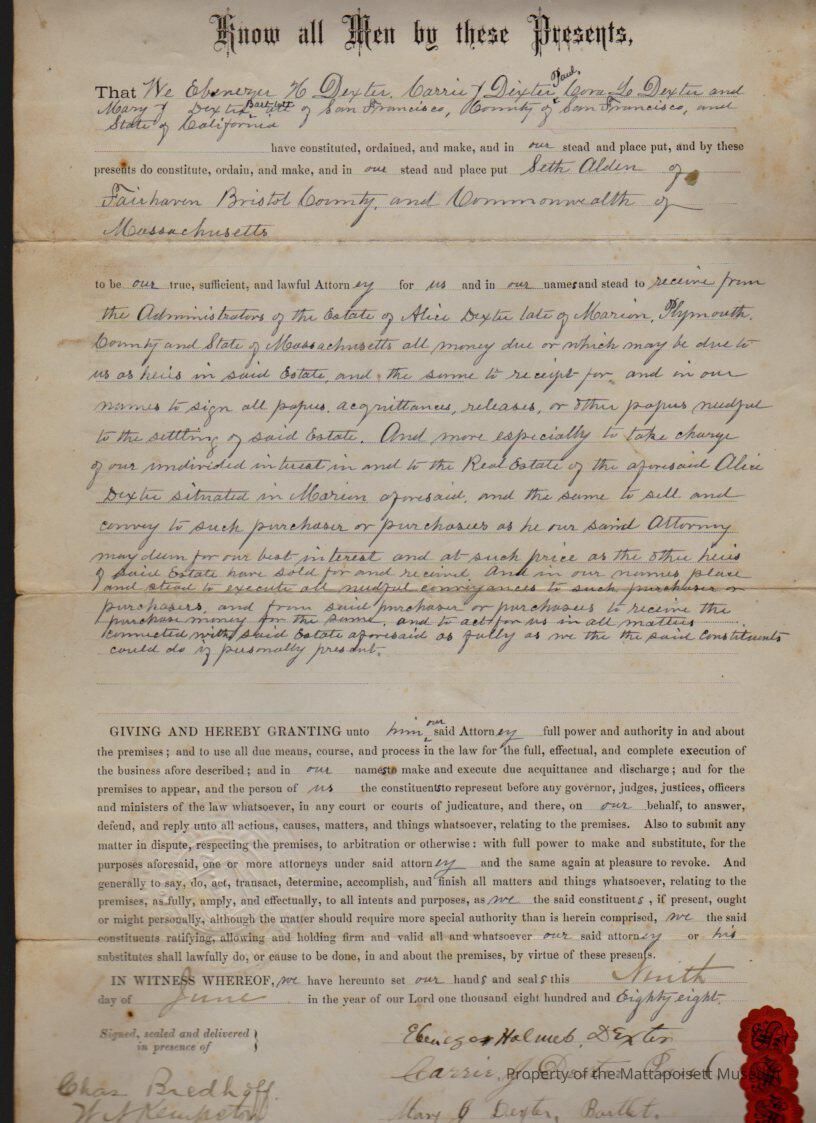 Know all Men by these Presents,
That We Ebenezer H Dexter, Carrie J Dexter Paul, Cora L Dexter and
Mary J Dexter Bartlett all of San Francisco, County of San Francisco, and
State of California
have constituted, ordained, and make, and in our stead and place put, and by these
presents do constitute, ordain, and make, and in our stead and place put Seth Alden of
Fairhaven Bristol County, and Commonwealth of
Massachusetts
to be our true, sufficient, and lawful Attorney for us and in our names and stead to receive from
the Administrators of the Estate of Alice Dexter late of Marion, Plymouth
County and State of Massachusetts all money due or which may be due to
us as heirs in said Estate, and the same to receipt for, and in our
names to sign all papers, acquittances, releases, or other papers needful
to the settling of said Estate. And more especially to take charge
of our undivided interest in and to the Real Estate of the aforesaid Alice
Dexter situated in Marion aforesaid, and the same to sell and
convey to such purchaser or purchasers as he our said Attorney
may deem for our best interest and at such price as the other heirs
of said Estate have sold for and received. And in our names place
and stead to execute all needful conveyances to such purchaser or
purchasers, and from said purchaser or purchasers to receive the
purchase money for the same, and to act for us in all matters
connected with said Estate aforesaid as fully as we the the said Constituents
could do if personally present.
GIVING AND HEREBY GRANTING unto him our said Attorney full power and authority in and about
the premises; and to use all due means, course, and process in the law for the full, effectual, and complete execution of
the business afore described; and in our names to make and execute due acquittance and discharge; and for the
premises to appear, and the person of us the constituents to represent before any governor, judges, justices, officers
and ministers of the law whatsoever, in any court or courts of judicature, and there, on our behalf, to answer,
defend, and reply unto all actions, causes, matters, and things whatsoever, relating to the premises. Also to submit any
matter in dispute, respecting the premises, to arbitration or otherwise: with full power to make and substitute, for the
purposes aforesaid, one or more attorneys under said attorney and the same again at pleasure to revoke. And
generally to say, do, act, transact, determine, accomplish, and finish all matters and things whatsoever, relating to the
premises, as fully, amply, and effectually, to all intents and purposes, as we the said constituents, if present, ought
or might personally, although the matter should require more special authority than is herein comprised, we the said
constituents ratifying, allowing and holding firm and valid all and whatsoever our said attorney or his
substitutes shall lawfully do, or cause to be done, in and about the premises, by virtue of these presents.
IN WITNESS WHEREOF, we have hereunto set our hands and seals this Ninth
day of June in the year of our Lord one thousand eight hundred and Eighty eight.
Signed, sealed and delivered
in presence of
Ebenezer Holmes, Dexter
Carrie, J Dexter Paul
Property of the Mattapoisett Museum
Chas Bredhoff
W A Kempston
Mary J Dexter, Bartlet.